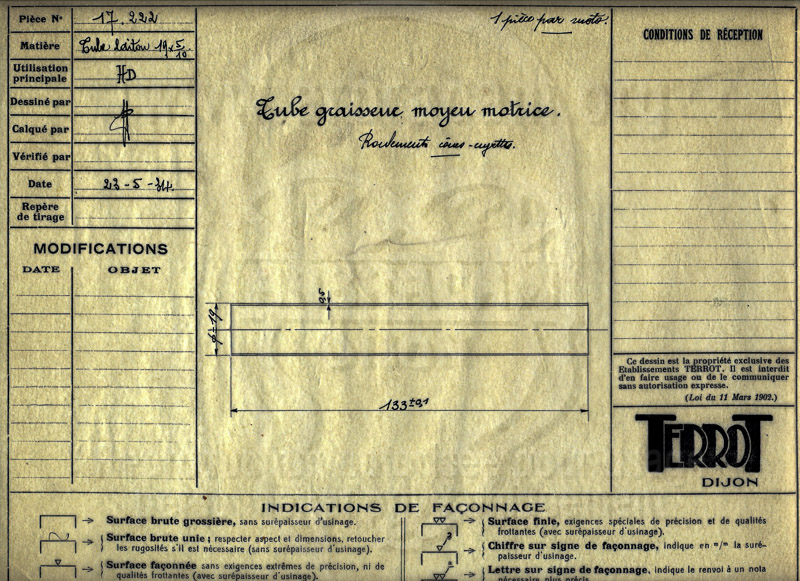 Pièce N° 17.222
1 pièce par moto.
Matière Tube laiton 19 x 5/10
Utilisation
principale HD
Dessiné par
Calqué par
Vérifié par
Date 23-5-34.
Repère
de tirage
MODIFICATIONS
DATE OBJET
Tube graisseur, moyeu motrice.
Roulements cônes-cuvettes.
0,5
φ=19
133±0,1
CONDITIONS DE RÉCEPTION
Ce dessin est la propriété exclusive des
Etablissements TERROT. Il est interdit
d'en faire usage ou de le communiquer
sans autorisation expresse.
(Loi du 11 Mars 1902.)
TERROT
DIJON
INDICATIONS DE FAÇONNAGE
Surface brute grossière, sans surépaisseur d'usinage.
Surface brute unie ; respecter aspect et dimensions, retoucher
les rugosités s'il est nécessaire (sans surépaisseur d'usinage).
Surface façonnée sans exigences extrêmes de précision, ni de
qualités frottantes (avec surépaisseur d'usinage).
Surface finie, exigences spéciales de précision et de qualités
frottantes (avec surépaisseur d'usinage).
Chiffre sur signe de façonnage, indique en "/" la suré-
paisseur d'usinage.
Lettre sur signe de façonnage, indique le renvoi à un nota
nécessaire plus précis.